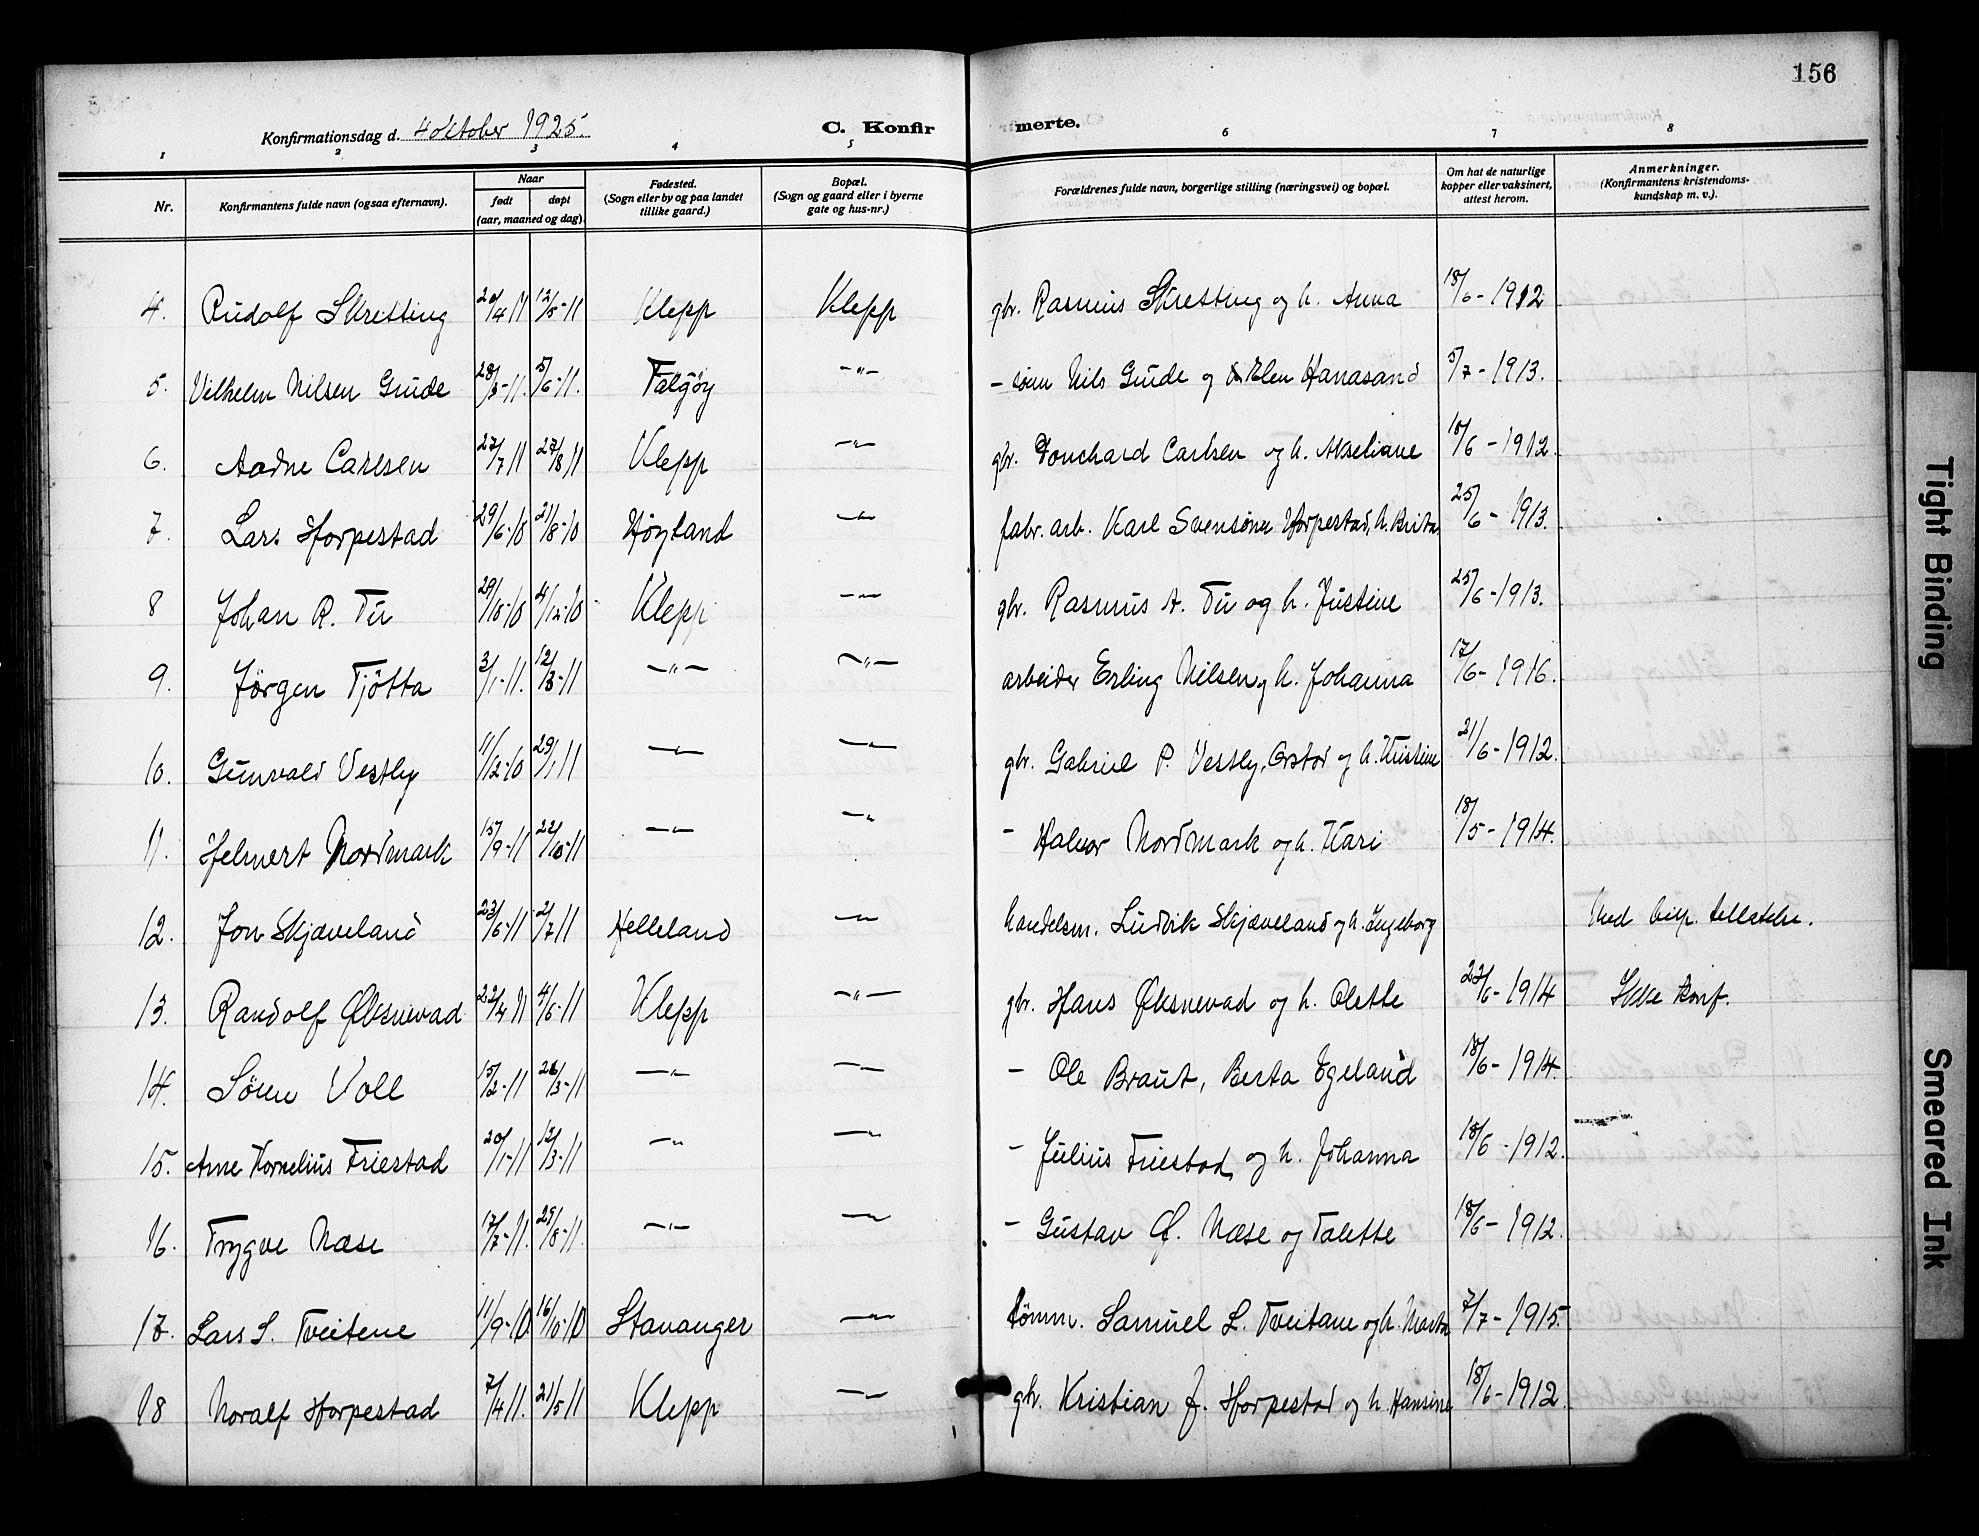 156
Konfirmationsdag d. 4 oktober 1925.
C. Konfir
merte.
1 2 3 4 5 6 7 8
Nr.
Konfirmantens fulde navn (ogsaa efternavn).
Naar
født
døpt
(aar, maaned og dag).
Fødested.
(Sogn eller by og paa landet
tillike gaard.)
Bopæl.
(Sogn og gaard eller i byerne
gate og hus-nr.)
Forældrenes fulde navn, borgerlige stilling (næringsvei) og bopæl.
Om hat de naturlige
kopper eller vaksinert,
attest herom.
Anmerkninger.
(Konfirmantens kristendoms-
kundskap m. v.).
4. Rudolf Skretting 20/4 11 12/5-11 Klepp Klepp gbr. Rasmus Skretting og h. Anna 18/6-1912
5. Vilhelm Nilsen Gude 28/3-11. 5/6-11. Talgøy -"- Nils Gude og Elen Hanasand 5/7-1913.
6. Aadne Carlsen 27/7 11 27/8 11 Klepp -"- gbr. Carlsen og h. Akseliane 18/6-1912.
7. Lars Horpestad 29/6-10 21/8-10 Høyland -"- fabr. arb. Karl Svensøna Horpestad, h. Brita 25/6-1913.
8 Johan R. Tu 29/10-10 4/12-10 Klepp -"- gbr. Rasmus A. Tu og h. Justine 25/6-1913.
9. Jørgen Tjøtta 3/1-11. 12/3-11 -"- -"- arbeider Erling Nilsen og h. Johanna 17/6-1916.
10. Gunvald Vestly 11/12-10 29/1 11 -"- -"- gbr. Gabriel P. Vestly, Orstad og h. Kristine 21/6-1912.
11. Helmert Nordmark 15/9-11 22/10-11 -"- -"- - Halvor Nordmark og h. Kari 18/5-1914.
12. Jon Skjæveland 23/6-11 2/7 11 Helleland -"- handelsm. Ludvik Skjæveland og h. Ingeborg Med bisp. tillatelse.
13. Randolf Øksnevad 22/4 11 4/6-11 Klepp -"- gbr. Hans Øksnevad og h. Olette 22/6-1914 Ikke konf.
14. Søren Voll 15/2-11 26/3-11 -"- -"- - Ole Braut, Berta Egeland 18/6-1914.
15. Arne Kornelius Friestad 20/1-11 12/3-11 -"- -"- - Julius Friestad og h. Johanna 18/6-1912.
16. Trygve Næse 17/7-11. 29/8-11. -"- -"- - Gustav Næse og Talette 18/6-1912.
17. Lars S. Tveitene 11/9-10. 16/10-10 Stavanger -"- tømm. Samuel L. Tveitane og h. Marta 7/7-1915.
18 Noralf Horpestad 7/4 11. 21/5 11 Klepp -"- gbr. Kristian J. Horpestad og h. Hansine 18/6-1912.
Tight Binding
Smeared Ink